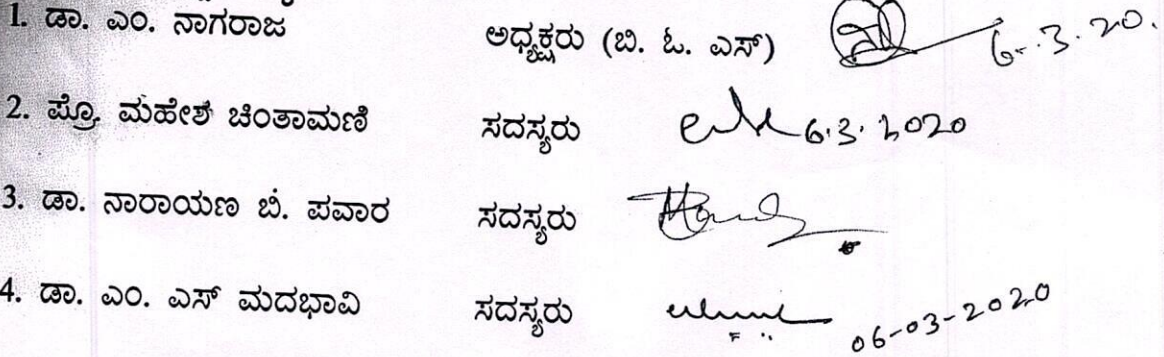 1. ಡಾ. ಎಂ. ನಾಗರಾಜ ಅಧ್ಯಕ್ಷರು (ಬಿ. ಓ. ಎಸ್) 6-.3.20.
2. ಪ್ರೊ. ಮಹೇಶ ಚಿಂತಾಮಣಿ ಸದಸ್ಯರು 6.3.2020
3. ಡಾ. ನಾರಾಯಣ ಬಿ. ಪವಾರ ಸದಸ್ಯರು
4. ಡಾ. ಎಂ. ಎಸ್ ಮದಭಾವಿ ಸದಸ್ಯರು 06-03-2020